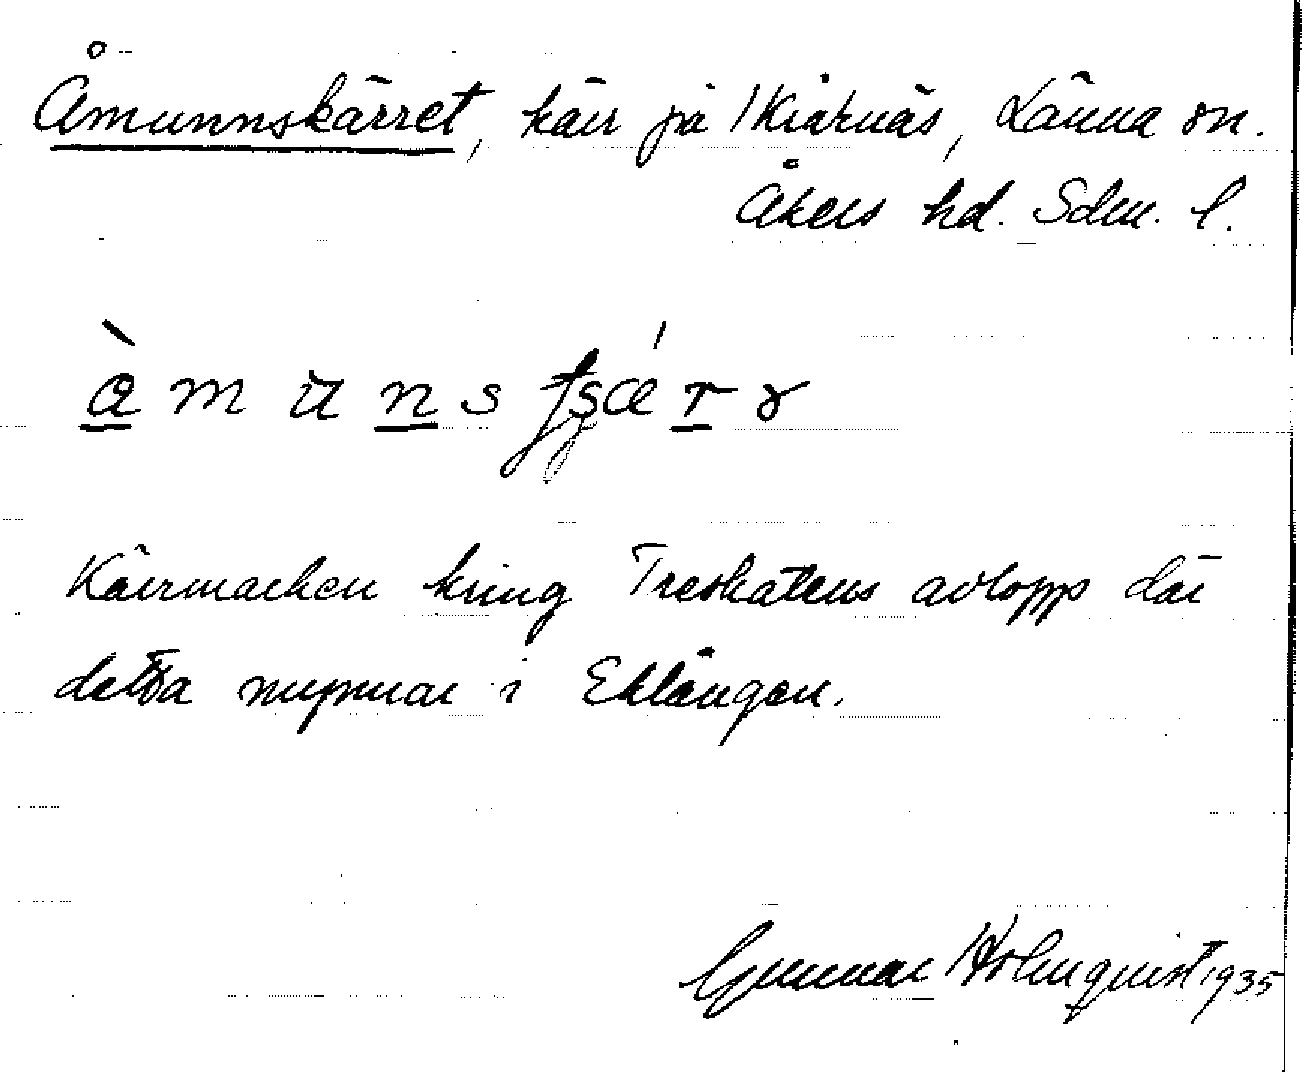 Åmunnskärret, kärr på Kiarnäs, Länna sn.
Åkers hd. Sdm. l.
kärrmarken kring Treskatens avlopp där
detta mynnar i Eklången.
Gunnar Holmquist 1935